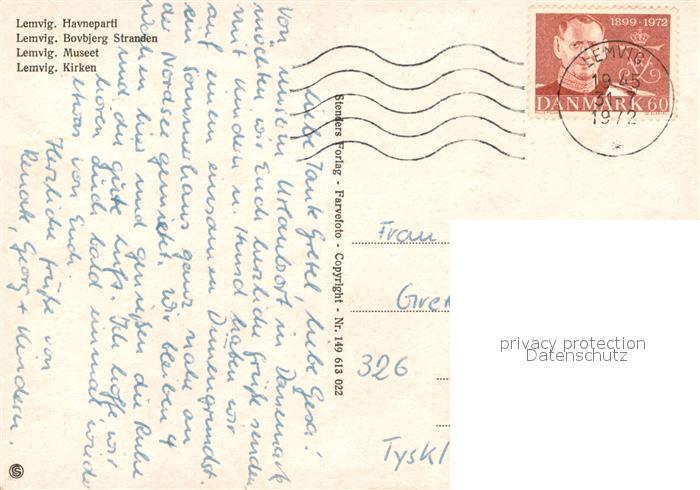 Lemvig. Havneparti
Lemvig. Bovbjerg Stranden
Lemvig. Museet
Lemvig. Kirken
1899-1972
DANMARK 60
LEMVIG
1972
Stenders Forlag - Farvefoto - Copyright - Nr. 149 613 022
Liebe Tante Gretel, liebe Gesa!
Von unserem Urlaubsort in Dänemark
möchten wir Euch herzliche Grüße senden
mit Kindern u. Hund haben wir
auf einem einsamen Dünengrundst.
ein Sommerhaus ganz nahe an
der Nordsee gemietet. Wir bleiben 4
Wochen hier und genießen die Ruhe
und die gute Luft. Ich hoffe, wir
hören auch bald einmal wieder
etwas von Euch.
Herzliche Grüße von
Renate, Georg + Kindern.
Frau
326
Tyskl
privacy protection
Datenschutz